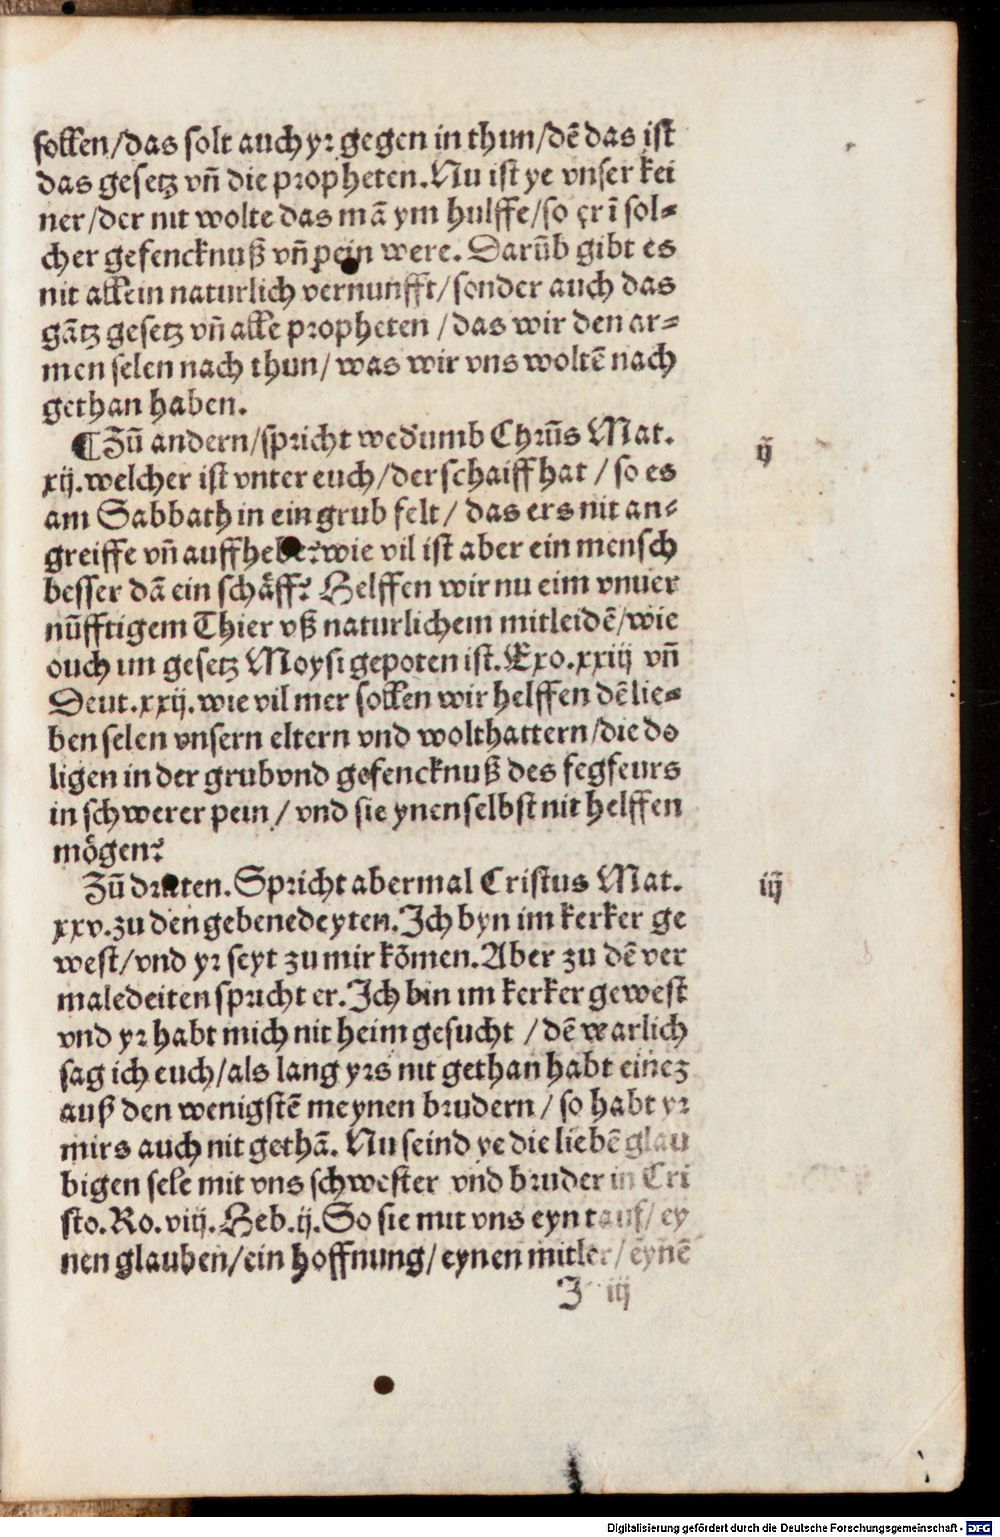 sollen/das solt auch yr gegen in thun/dē das ist
das gesetz vn̄ die propheten. Nu ist ye vnser kei
ner/der nit wolte das mā ym hulffe/so er ī sol⸗
cher gefencknuß vn̄ pein were. Darūb gibt es
nit allein naturlich vernunfft/sonder auch das
gātz gesetz vn̄ alle propheten /das wir den ar⸗
men selen nach thun/ was wir vns woltē nach
gethan haben.
¶Zū andern/spricht wed'umb Chrūs Mat.
xij. welcher ist vnter euch/der schaiff hat / so es
am Sabbath in ein grub felt/ das ers nit an⸗
greiffe vn̄ auffhebe? wie vil ist aber ein mensch
besser dā ein schäff? Helffen wir nu eim vnuer
nūfftigem Thier vß naturlichem mitleidē/wie
ouch im gesetz Moysi gepoten ist. Exo. xxiij vn̄
Deut. xxij. wie vil mer sollen wir helffen dē lie⸗
ben selen vnsern eltern vnd wolthattern/die do
ligen in der grub vnd gefencknuß des fegfeurs
in schwerer pein / vnd sie ynen selbst nit helffen
mögen?
Zū dritten. Spricht abermal Cristus Mat.
xxv. zu den gebenedeyten. Ich byn im kerker ge
west/vnd yr seyt zu mir kōmen. Aber zu dē ver
maledeiten spricht er. Ich bin im kerker gewest
vnd yr habt mich nit heim gesucht /dē warlich
sag ich euch/als lang yrs nit gethan habt einez
auß den wenigstē meynen brudern / so habt yr
mirs auch nit gethā. Nu seind ye die liebē glau
bigen sele mit vns schwester vnd bruder in Cri
sto. Ro. viij. Heb. ij. So sie mit vns eyn tauf/ ey
nen glauben/ein hoffnung/eynen mitler/eynē
J iij
ij
iij
Digitalisierung gefördert durch die Deutsche Forschungsgemeinschaft - DFG